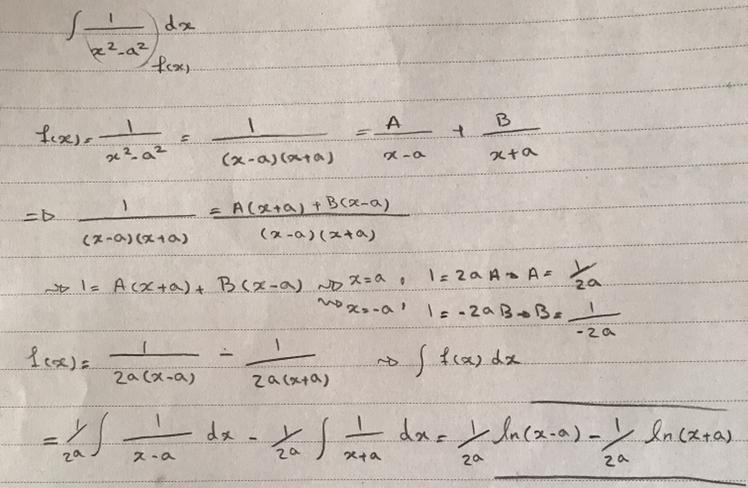 ∫ 1/(x²-a²) dx
f(x)
f(x) = 1/(x²-a²) = 1/((x-a)(x+a)) = A/(x-a) + B/(x+a)
=> 1/((x-a)(x+a)) = (A(x+a) + B(x-a))/((x-a)(x+a))
→ 1 = A(x+a) + B(x-a) → x=a, 1 = 2aA → A = 1/2a
→ x=-a, 1 = -2aB → B = 1/-2a
f(x) = 1/(2a(x-a)) - 1/(2a(x+a)) → ∫ f(x) dx
= 1/2a ∫ 1/(x-a) dx - 1/2a ∫ 1/(x+a) dx = 1/2a ln(x-a) - 1/2a ln(x+a)